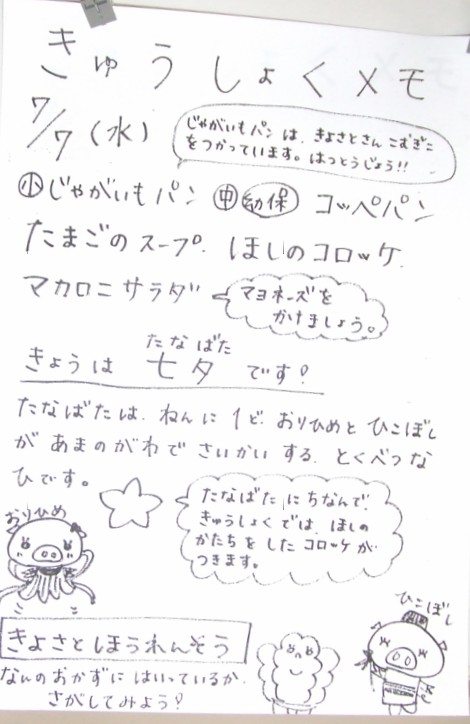 きゅうしょくメモ
7/7(水)
じゃがいもパンは、きよさとさんこむぎこ
をつかっています。はつとうじょう!!
小 じゃがいもパン 中 幼保 コッペパン
たまごのスープ. ほしのコロッケ.
マカロニサラダ
マヨネーズを
かけましょう。
たなばた
きょうは 七夕 です!
たなばたは、ねんに1ど、おりひめとひこぼし
があまのがわでさいかいする、とくべつな
ひです。
たなばたにちなんで、
きゅうしょくでは、ほしの
かたちをしたコロッケが、
つきます。
おりひめ
ひこぼし
きよさとほうれんそう
なんのおかずにはいっているか、
さがしてみよう?